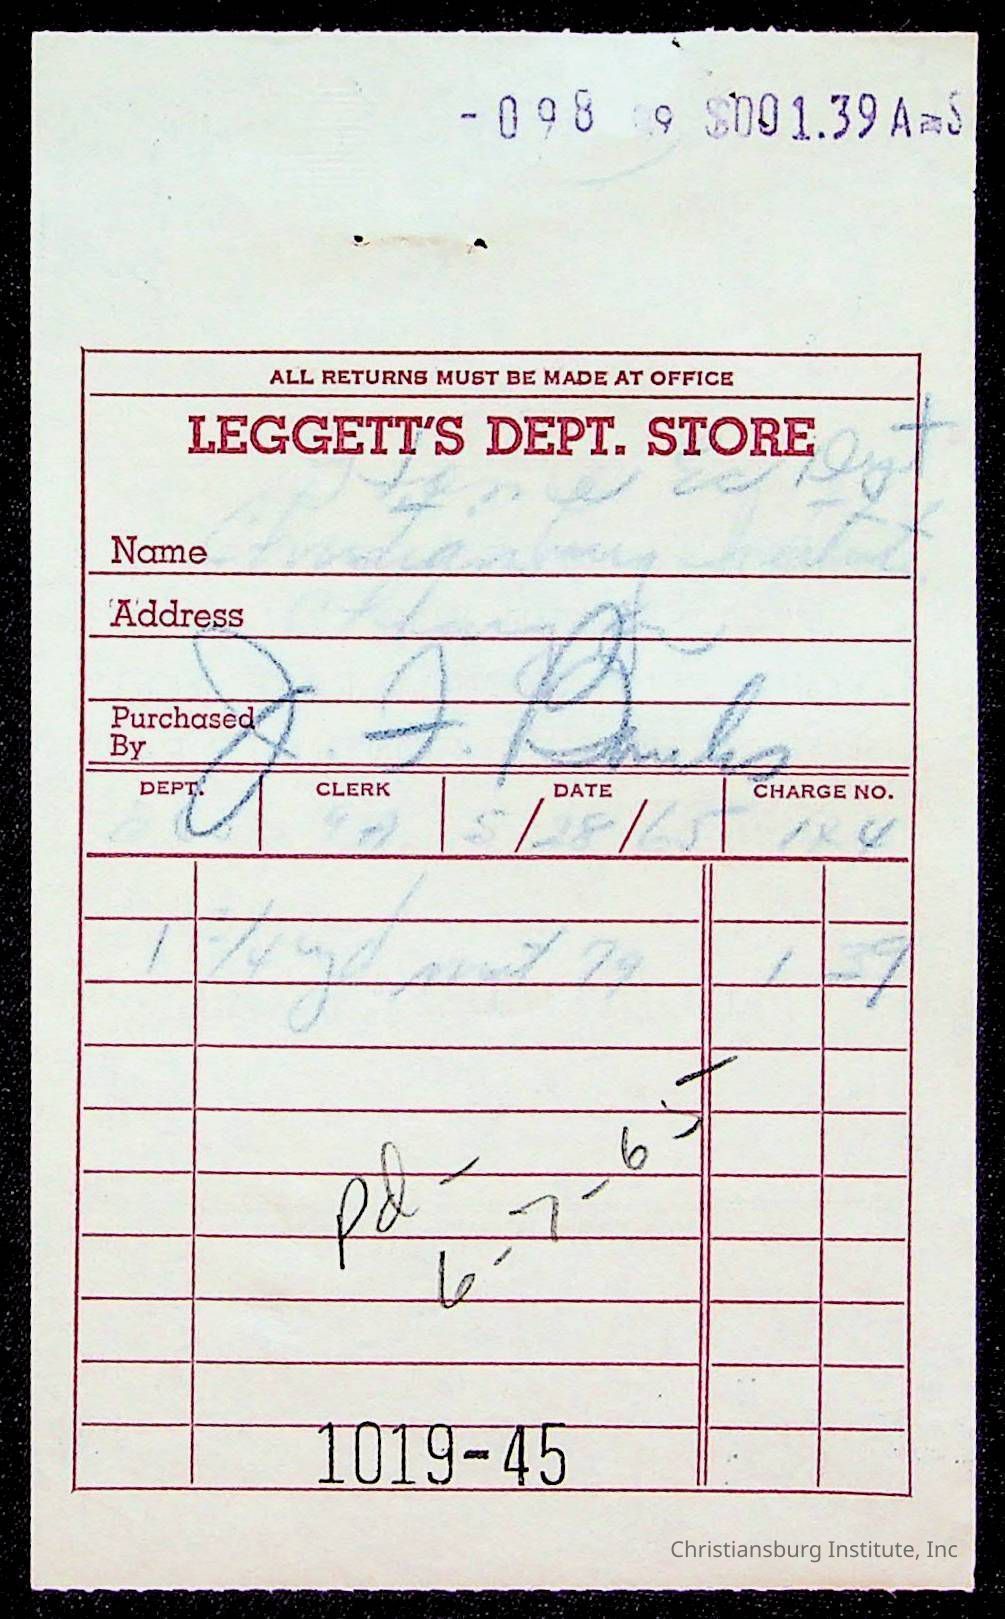 -098 9 $001.39A=S
ALL RETURNS MUST BE MADE AT OFFICE
LEGGETT'S DEPT. STORE
Home Ec Dept
Name Christiansburg Instit
Address
Purchased By J. F. Banks
DEPT. CLERK DATE CHARGE NO.
5/28/65
1 3/4 yd 79 1 39
pd - 6-7-65
1019-45
Christiansburg Institute, Inc